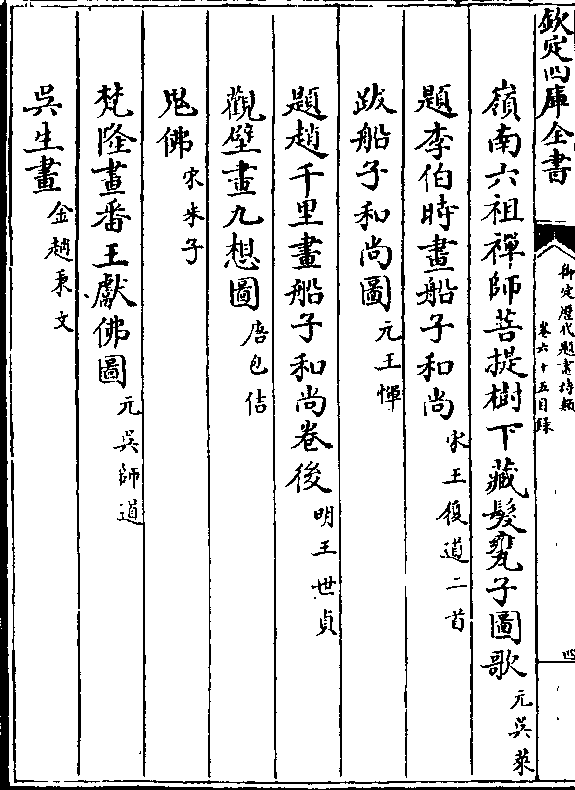 欽定四庫全書
御定歷代題畫詩類
卷六十五目錄
四
嶺南六祖禪師菩提樹下藏髮甕子圖歌 元吳萊
題李伯時畫船子和尚 宋王復道二首
跋船子和尚圖 元王惲
題趙千里畫船子和尚卷後 明王世貞
觀壁畫九想圖 唐包佶
鬼佛 宋朱子
梵隆畫番王獻佛圖 元吳師道
吳生畫 金趙秉文